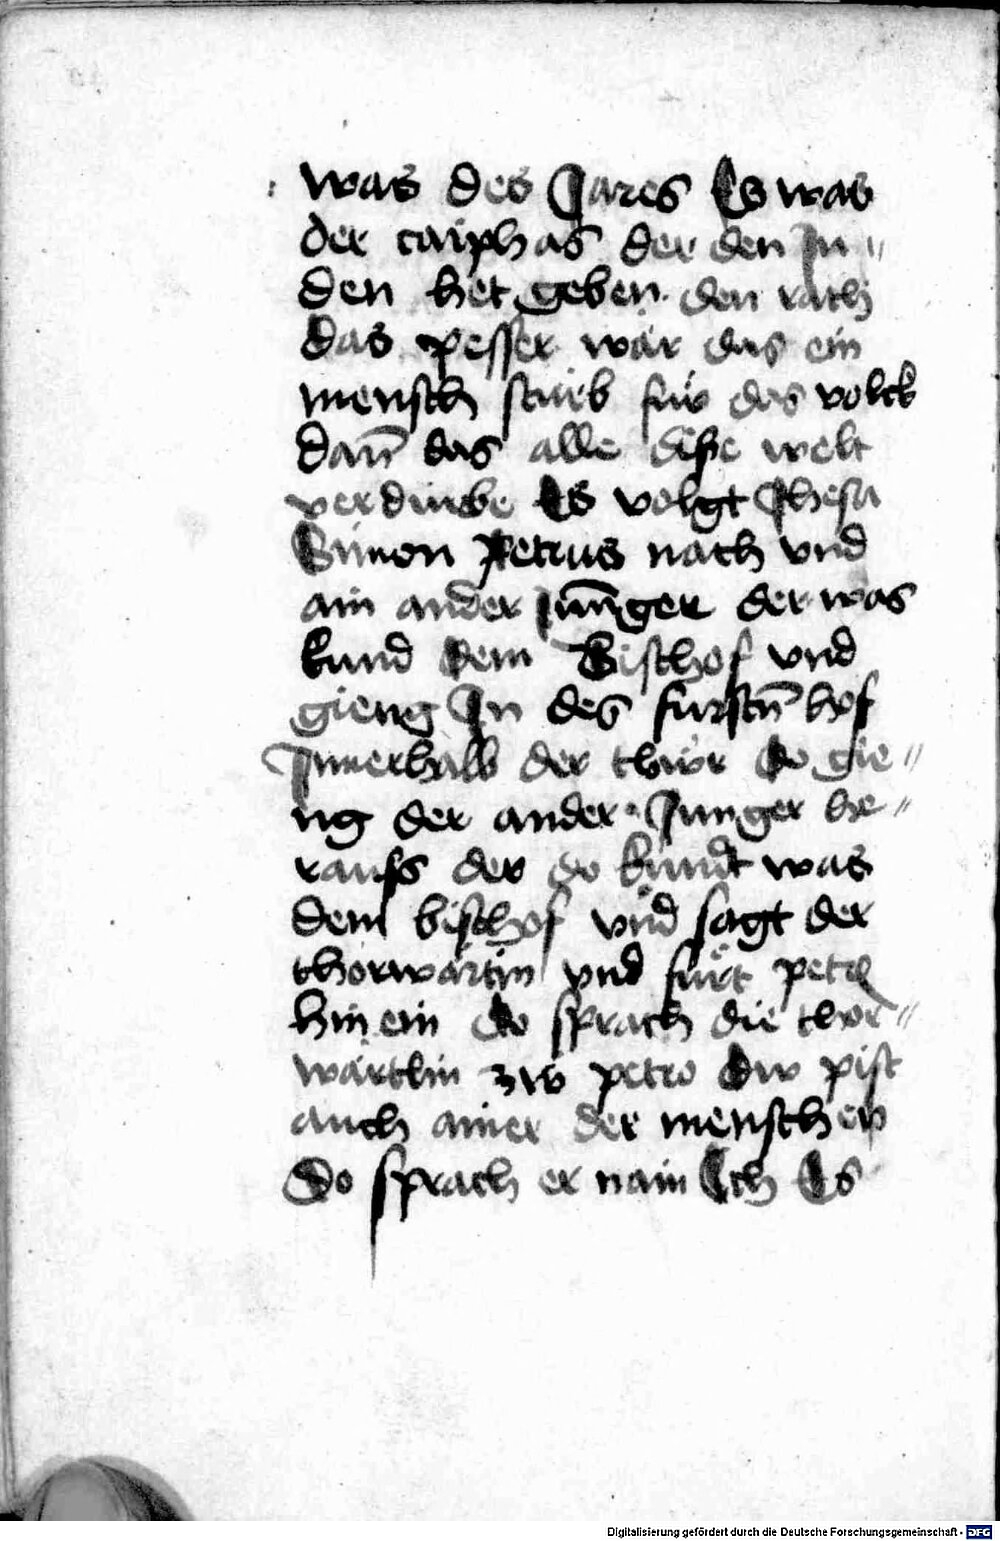 was des Jares Es was
der caiphas der den Ju〃
den het geben den rath
das pesser wär das ein
mensch stürb für das volck
dan̅ das alle dise welt
verdürbe Es volgt Jhesu
Simon Petrus nach vnd
ain ander Jun̅ger der was
kund dem Bischof vnd
gieng In des furstn̅ hof
Innerhalb der thür do gie〃
ng der ander Junger he〃
rauss der do kundt was
dem bischof vnd sagt der
thorwärtin vnd fürt petro
hinein do sprach die thor〃
wärtlin zw petro dw pist
auch ainer der menschen
Do sprach er nain Ich Es
Digitalisierung gefördert durch die Deutsche Forschungsgemeinschaft - DFG